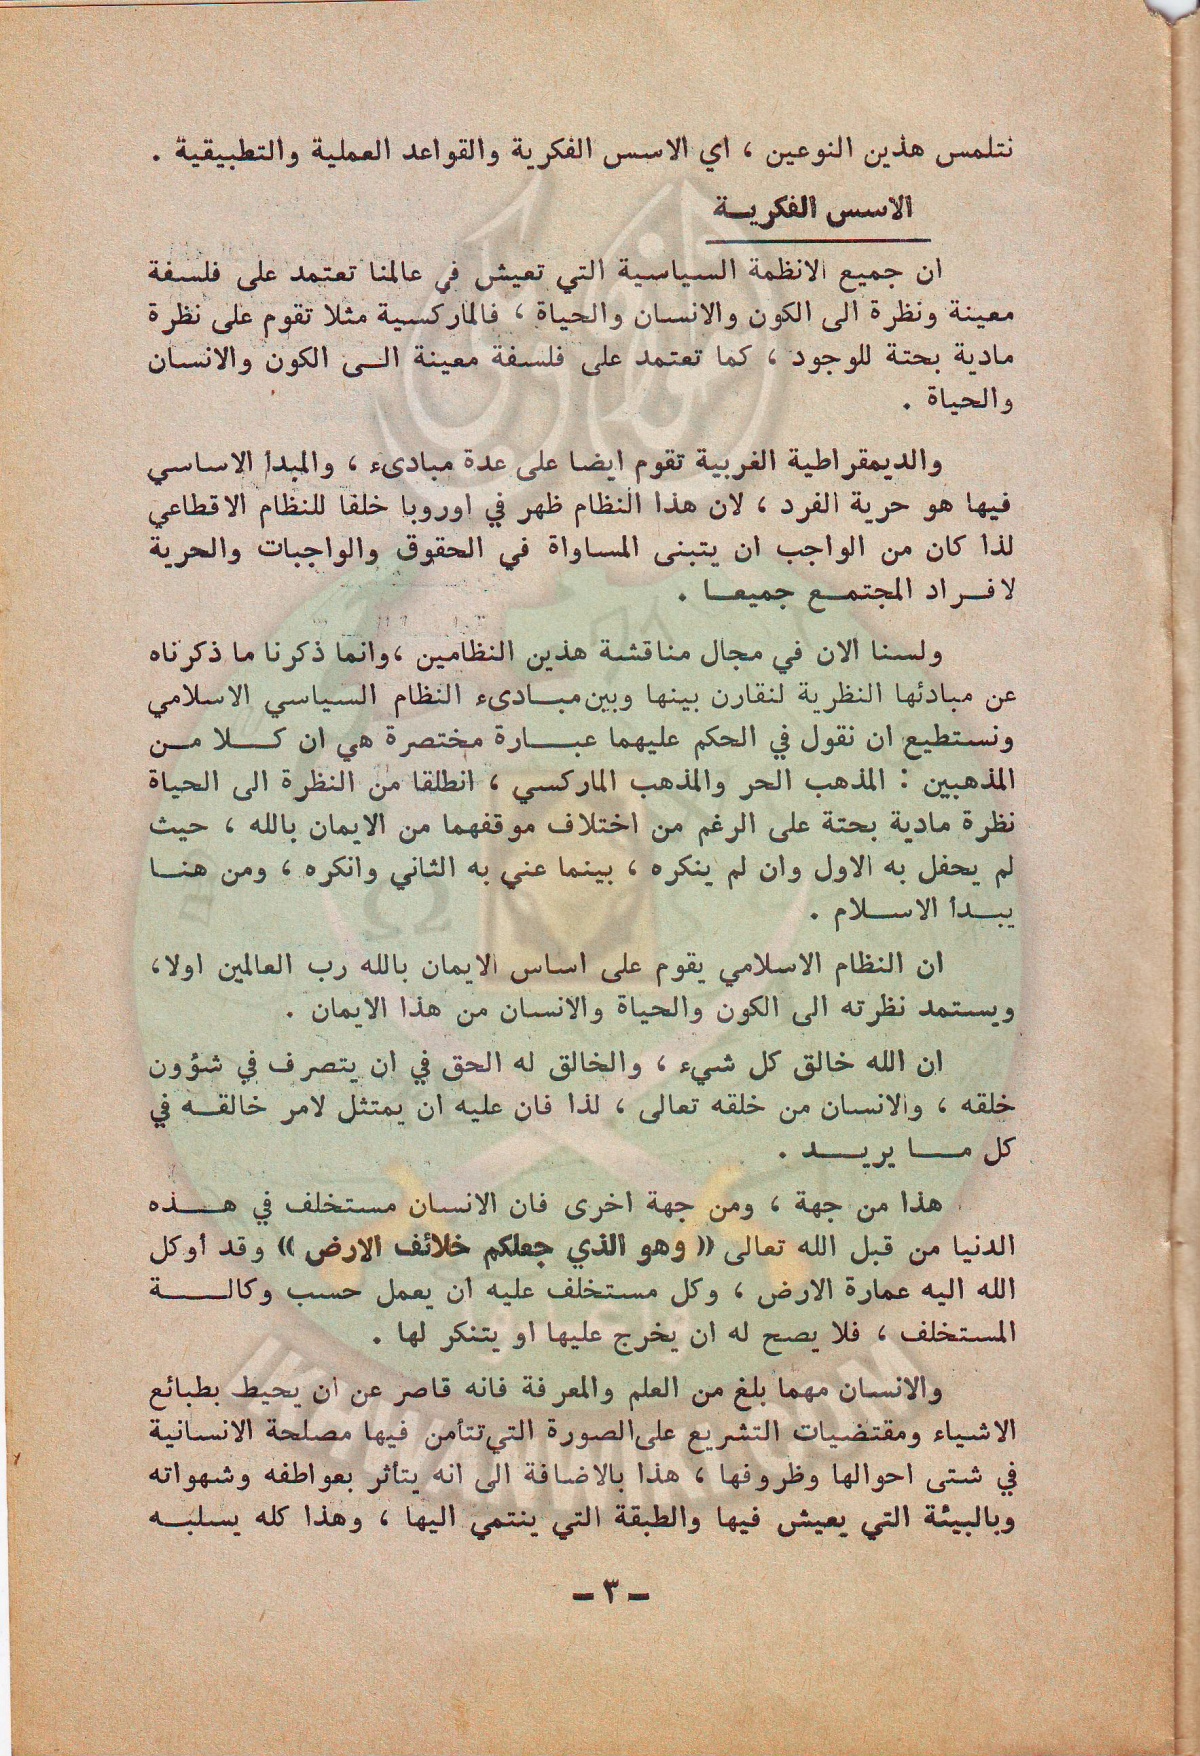 نتلمس هذين النوعين ، اي الاسس الفكرية والقواعد العملية والتطبيقية .
الاسس الفكريــة
ان جميع الانظمة السياسية التي تعيش في عالمنا تعتمد على فلسفة
معينة ونظرة الى الكون والانسان والحياة ، فالماركسية مثلا تقوم على نظرة
مادية بحتة للوجود ، كما تعتمد على فلسفة معينة الــى الكون والانسان
والحياة .
والديمقراطية الغربية تقوم ايضا على عدة مبادىء ، والمبدأ الاساسي
فيها هو حرية الفرد ، لان هذا النظام ظهر في اوروبا خلفا للنظام الاقطاعي
لذا كان من الواجب ان يتبنى المساواة في الحقوق والواجبات والحرية
لافــراد المجتمــع جميعــا .
ولسنا الان في مجال مناقشة هذين النظامين ،وانما ذكرنا ما ذكرناه
عن مبادئها النظرية لنقارن بينها وبين مبــادىء النظام السياسي الاسلامي
ونستطيع ان نقول في الحكم عليهما عبــارة مختصرة هي ان كــلا مــن
المذهبين : المذهب الحر والمذهب الماركسي ، انطلقا من النظرة الى الحياة
نظرة مادية بحتة على الرغم من اختلاف موقفهما من الايمان بالله ، حيث
لم يحفل به الاول وان لم ينكره ، بينما عني به الثاني وانكره ، ومن هنــا
يبــدأ الاســلام .
ان النظام الاسلامي يقوم على اساس الايمان بالله رب العالمين اولا،
ويستمد نظرته الى الكون والحياة والانسان من هذا الايمان .
ان الله خالق كل شيء ، والخالق له الحق في ان يتصرف في شؤون
خلقه ، والانسان من خلقه تعالى ، لذا فان عليه ان يمتثل لامر خالقــه في
كل مــا يريــد .
هذا من جهة ، ومن جهة اخرى فان الانسان مستخلف في هــذه
الدنيا من قبل الله تعالى (( وهو الذي جعلكم خلائف الارض )) وقد أوكل
الله اليه عمارة الارض ، وكل مستخلف عليه ان يعمل حسب وكالــة
المستخلف ، فلا يصح له ان يخرج عليها او يتنكر لها .
والانسان مهما بلغ من العلم والمعرفة فانه قاصر عن ان يحيط بطبائع
الاشياء ومقتضيات التشريع على الصورة التي تتأمن فيها مصلحة الانسانية
في شتى احوالها وظروفها ، هذا بالاضافة الى انه يتأثر بعواطفه وشهواته
وبالبيئة التي يعيش فيها والطبقة التي ينتمي اليها ، وهذا كله يسلبــه
ـ ٣ ـ